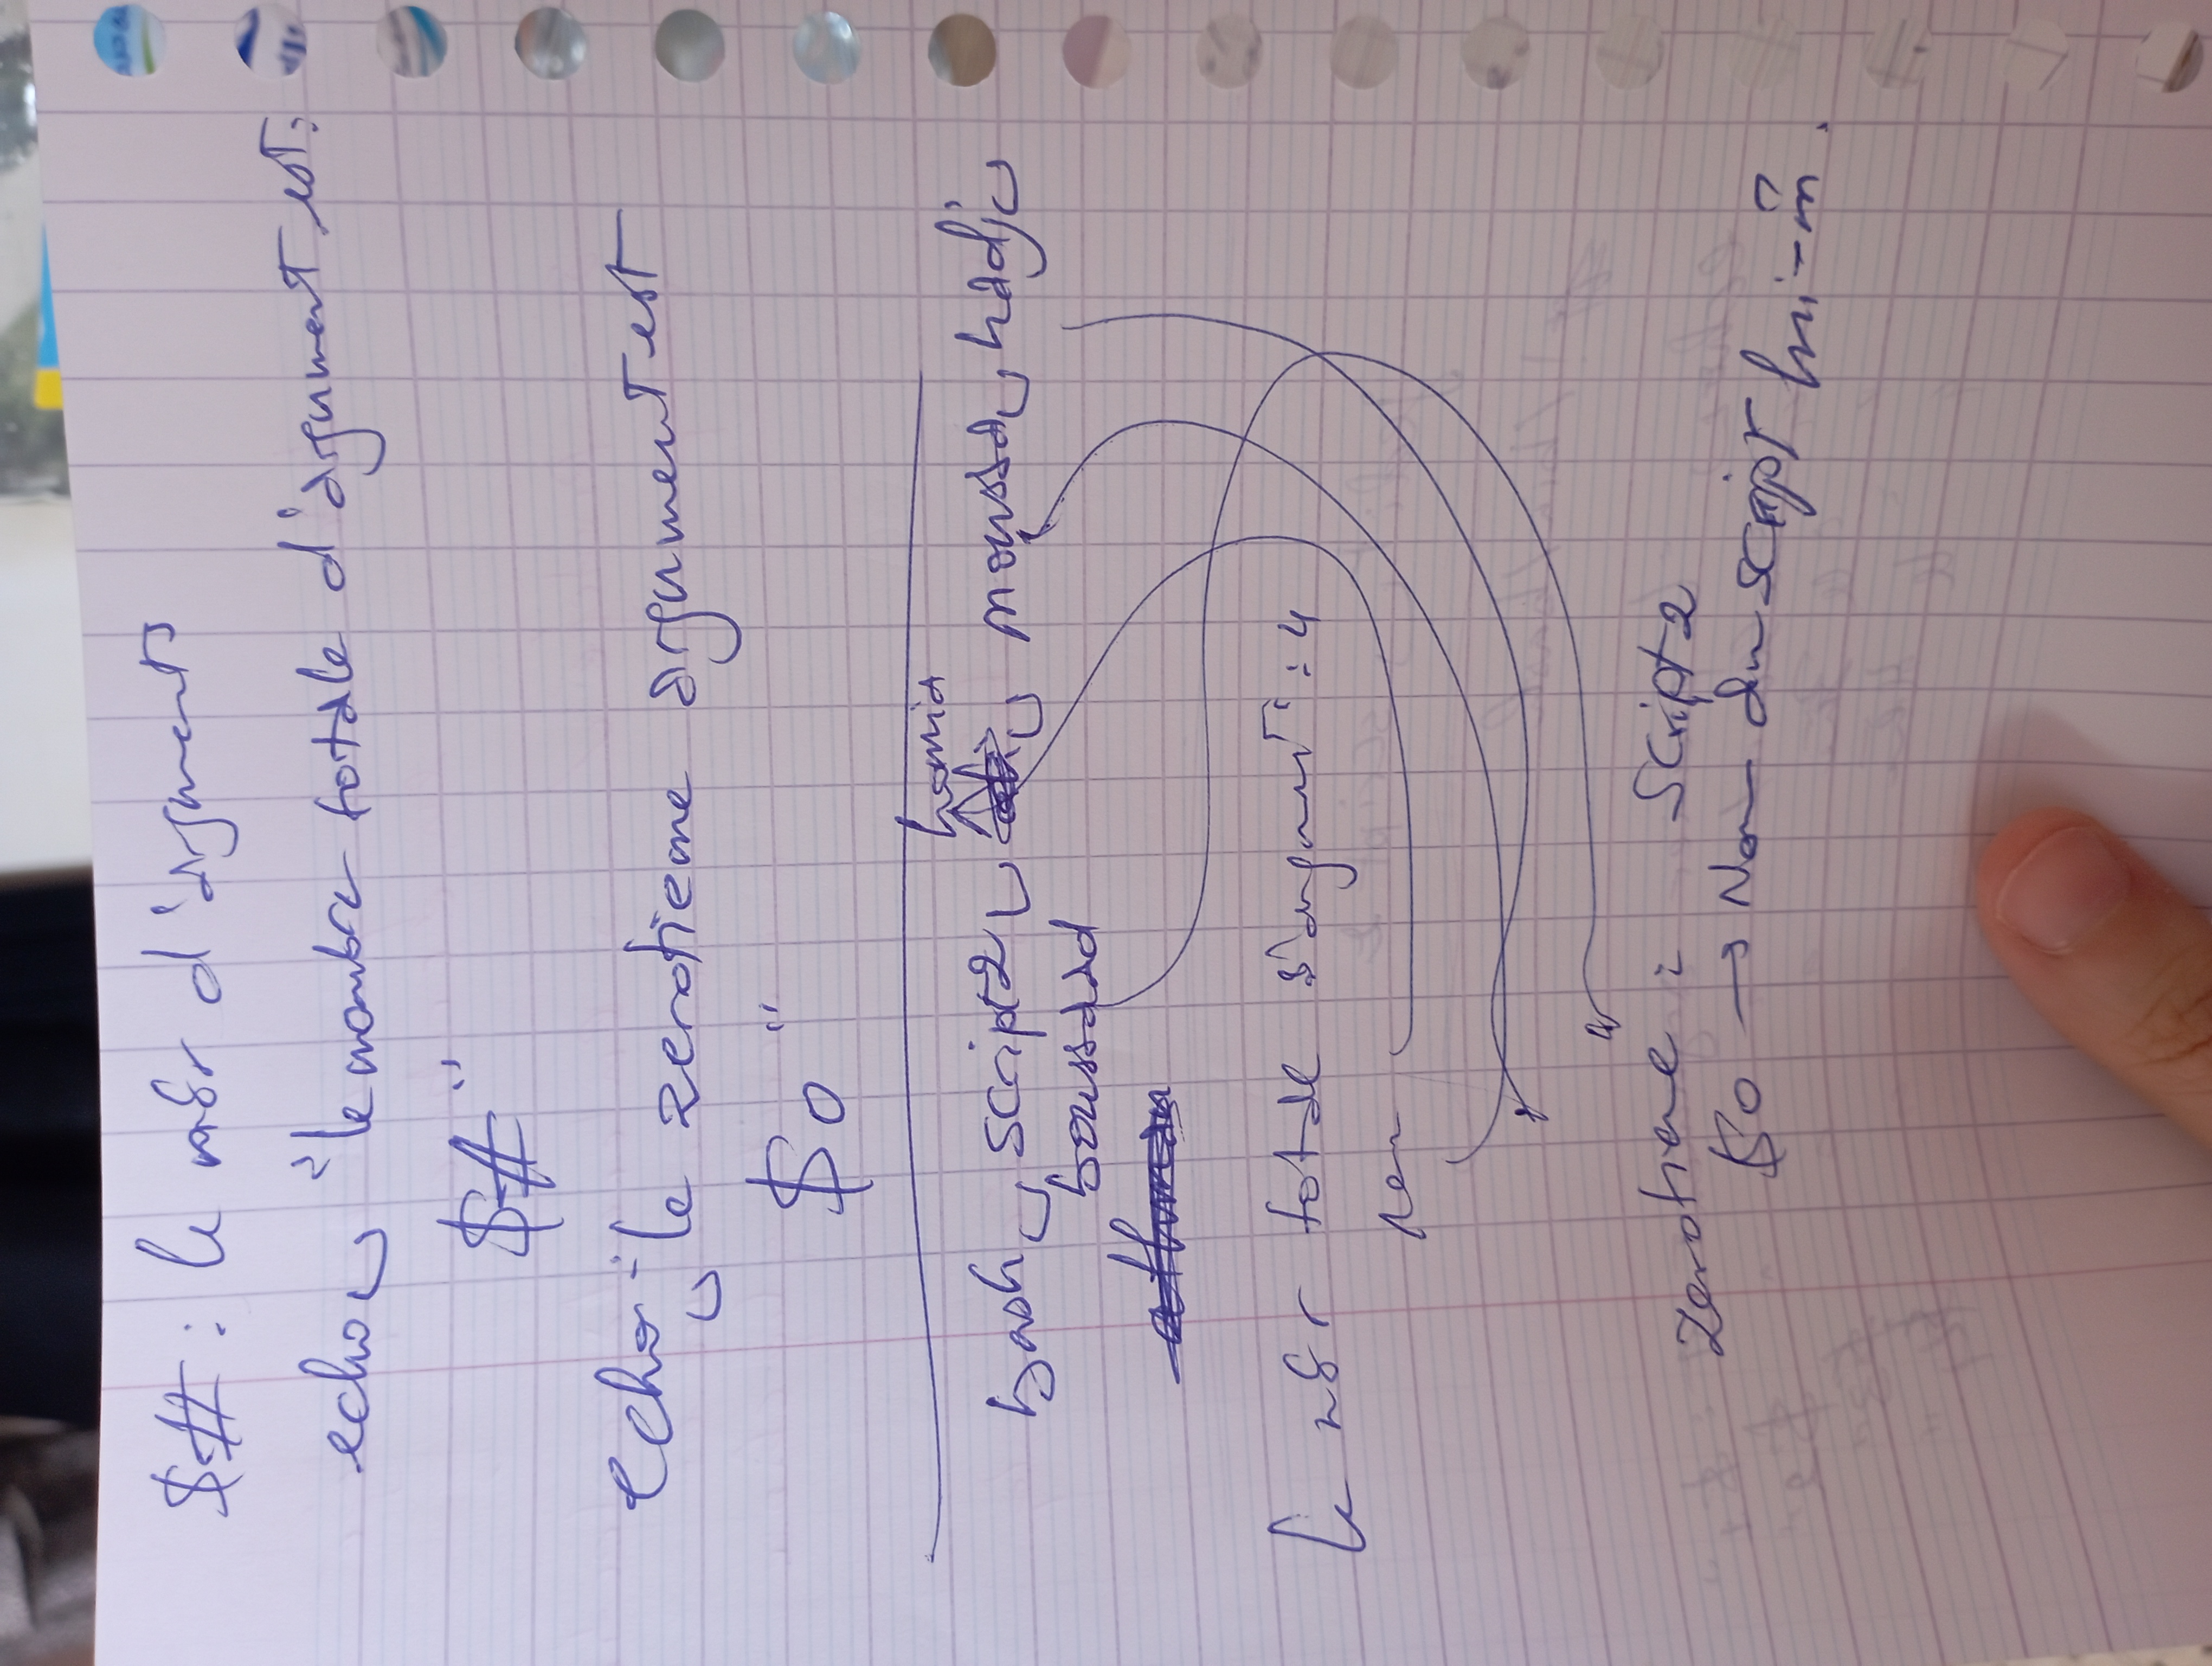 $# : le nbr d'arguments
echo "le nombre totale d'argument est :
$#"
echo "le zerotieme argument est
$0"
hamid
bash script2 moussa hadj
boussaad
le nbr totale d'argument : 4
zerotieme : Script2
$0 → Nom du script lui-m̂.